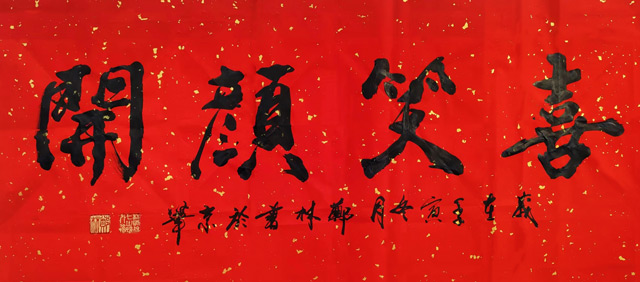 喜笑顏開
歲在壬寅冬月鄭林書於京華